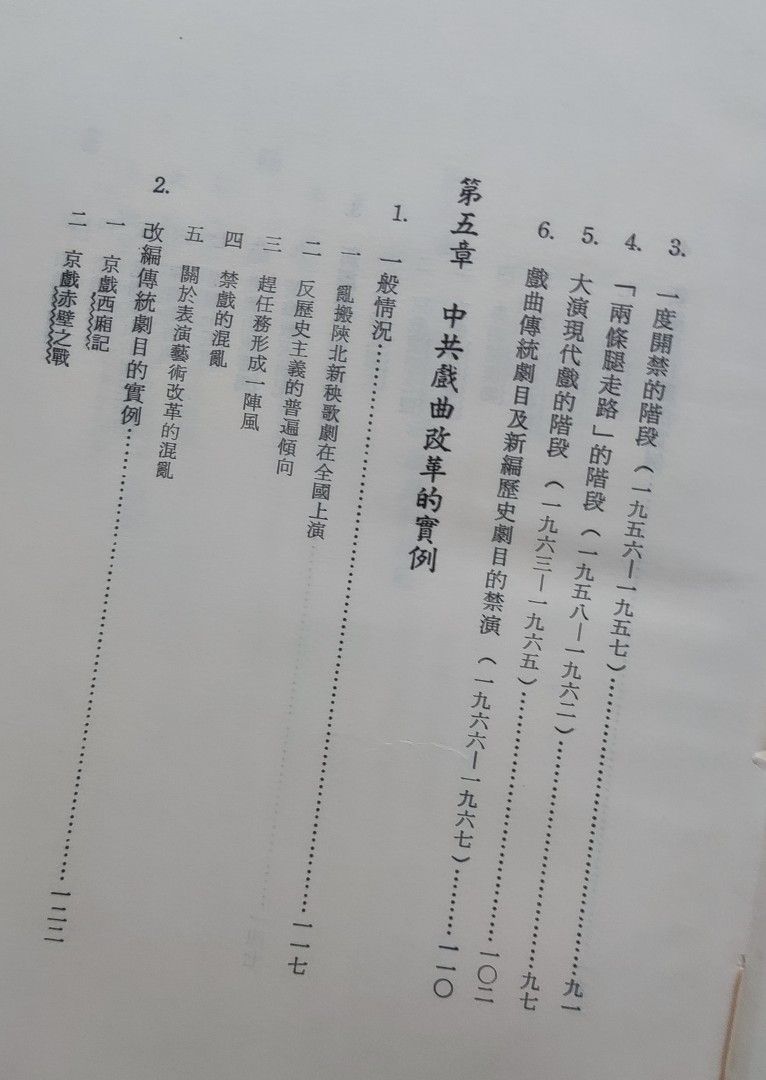 3. 一度開禁的階段（一九五六—一九五七）……九一
4. 「兩條腿走路」的階段（一九五八—一九六二）……九七
5. 大演現代戲的階段（一九六三—一九六五）……一〇二
6. 戲曲傳統劇目及新編歷史劇目的禁演（一九六六—一九六七）……一一〇
第五章　中共戲曲改革的實例
1. 一般情況……一一七
一　亂搬陝北新秧歌劇在全國上演
二　反歷史主義的普遍傾向
三　趕任務形成一陣風
四　禁戲的混亂
五　關於表演藝術改革的混亂
2. 改編傳統劇目的實例……一二二
一　京戲西廂記
二　京戲赤壁之戰